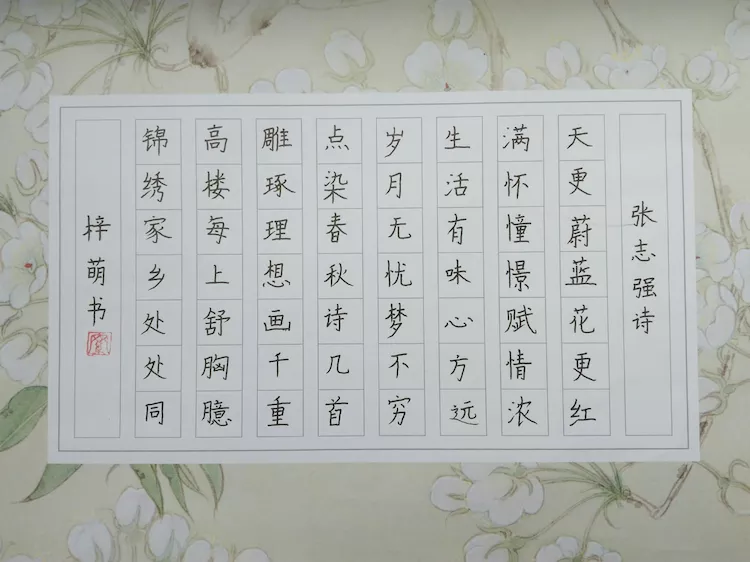 张志强诗
天更蔚蓝花更红
满怀憧憬赋情浓
生活有味心方远
岁月无忧梦不穷
点染春秋诗几首
雕琢理想画千重
高楼每上舒胸臆
锦绣家乡处处同
梓萌书